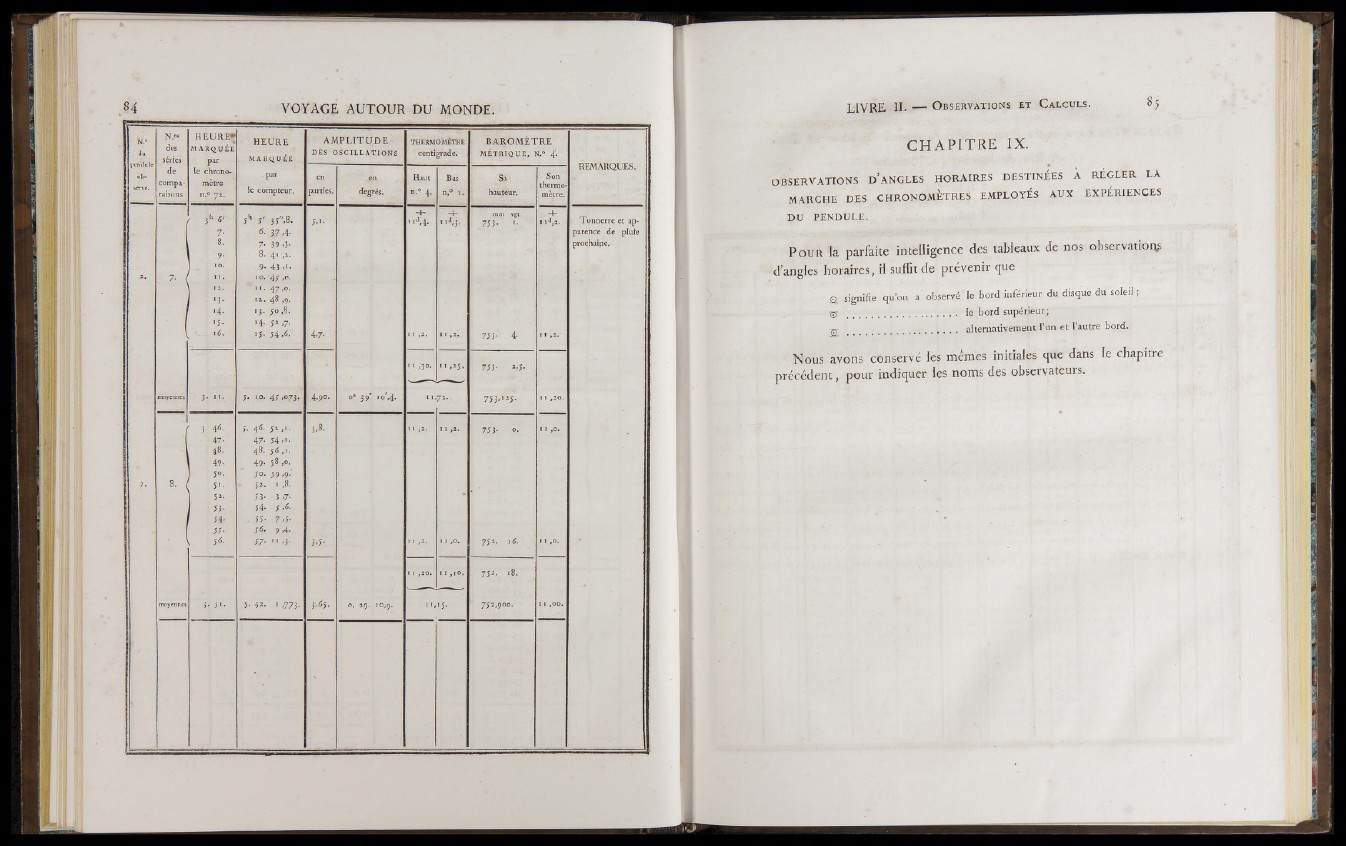 84 VOYAGE AUTOUR DU MONDE.
N.° du pendule ob- servé.
N.os des séries de compa- raisons
HEURE MARQUÉE par le chrono- mètre n.° 72.
HEURE MARQUÉE par le compteur.
AMPLITUDE DES OSCILLATIONS
en parties. en degrés.
THERMOMÈTRE centigrade.
Haut n.° 4. Bas n.° 1.
BAROMÈTRE MÉTRIQUE, N.° 4.
Sa hauteur. Son thermo- mètre.
REMARQUES.
3h 6' 5h 5' 35",8. 5,1. + 11d,4. + 11d,3. mm vgt 753. 1. + 11d,2. Tonnerre et ap-
7. 6. 37,4. parence de pluie
8. 7. 39,3. prochaine.
9. 8. 41,2.
10. 9. 43,1.
2. 7. 11. 10. 45,0.
12. 11. 47,0.
13. 12. 48,9.
14. 13. 50,8.
15. 14. 52,7.
16. 15. 54,6. 4,7. 11,2. 11,2. 753. 4. 11,2.
11,30. 11,25. 753. 2,5.
moyennes 3. 11. 5. 10. 45,073. 4,90. 0° 39' 10",4. 11,72. 753,125. 11,20.
3. 46. 5. 46. 52,1. 3,8. 11,2. 11,2. 753. 0. 11,0.
47. 47. 54,1.
48. 48. 56,1.
49. 49. 58,0.
50. 50. 59,9.
8. 51. 52. 1,8.
52. 53. 3,7.
53. 54. 5,6.
54. 55. 7,5.
55. 56. 9,4.
56. 57. 11,3. 3,5. 11,2. 11,0. 752. 16. 11,0.
11,20. 11,10. 752. 18.
moyennes 3. 51. 5. 52. 1,773. 3,65. 0. 29. 10,9. 11,15. 752,900. 11,00.
LIVRE II. — OBSERVATIONS ET CALCULS. 85
CHAPITRE IX.
OBSERVATIONS D'ANGLES HORAIRES DESTINÉES À RÉGLER LA
MARCHE DES CHRONOMÈTRES EMPLOYÉS AUX EXPÉRIENCES
DU PENDULE.
POUR la parfaite intelligence des tableaux de nos observations
d'angles horaires, il suffit de prévenir que
signifie qu'on a observé le bord inférieur du disque du soleil;
.................... le bord supérieur;
.................... alternativement l'un et l'autre bord.
Nous avons conservé les mêmes initiales que dans le chapitre
précédent, pour indiquer les noms des observateurs.